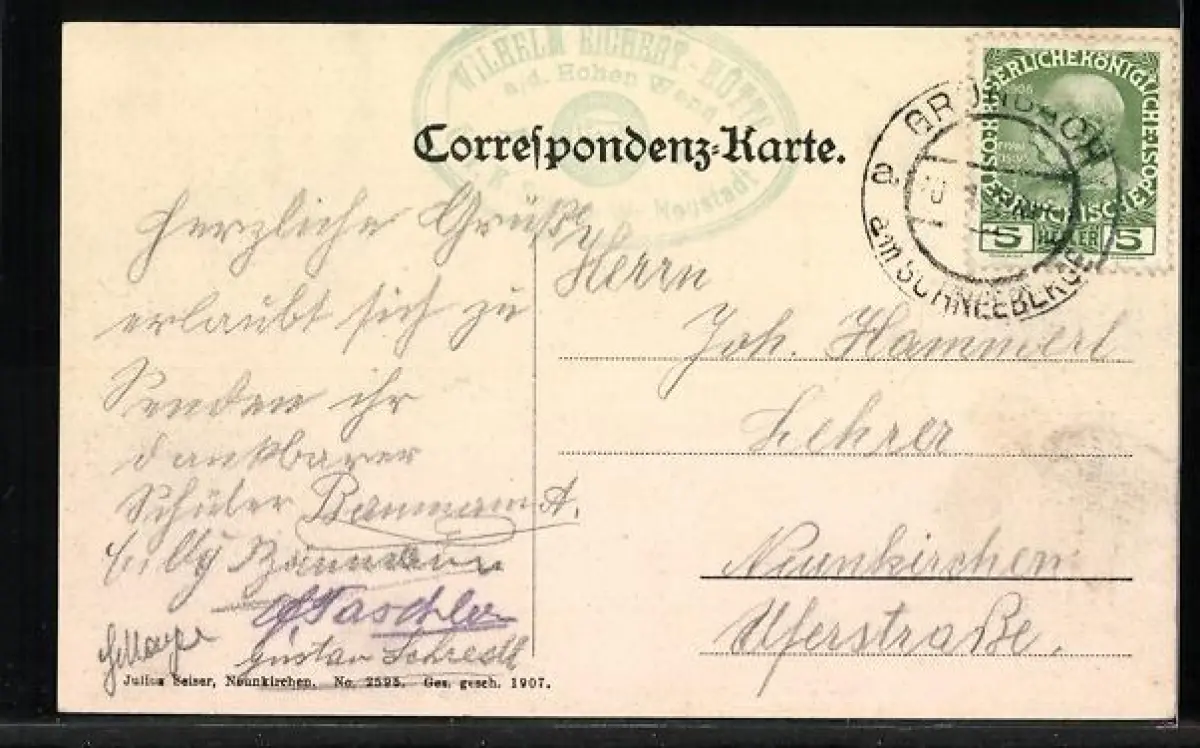 WILHELM EICHERT-HÜTTE
a/d. Hohen Wand
Neustadt
Correspondenz-Karte.
KAISERLICHE KÖNIGLICHE ÖSTERREICHISCHE POST
5 HELLER 5
GRÜNBACH
a
am SCHNEEBERGE
Herzliche Grüße
erlaubt sich zu
Senden ihr
dankbarer
Schüler Baumann A.
Baumann
Gustav
Herrn
Joh. Hammerl
Lehrer
Neunkirchen
Uferstraße.
Julius Seiser, Neunkirchen. No. 2595. Ges. gesch. 1907.